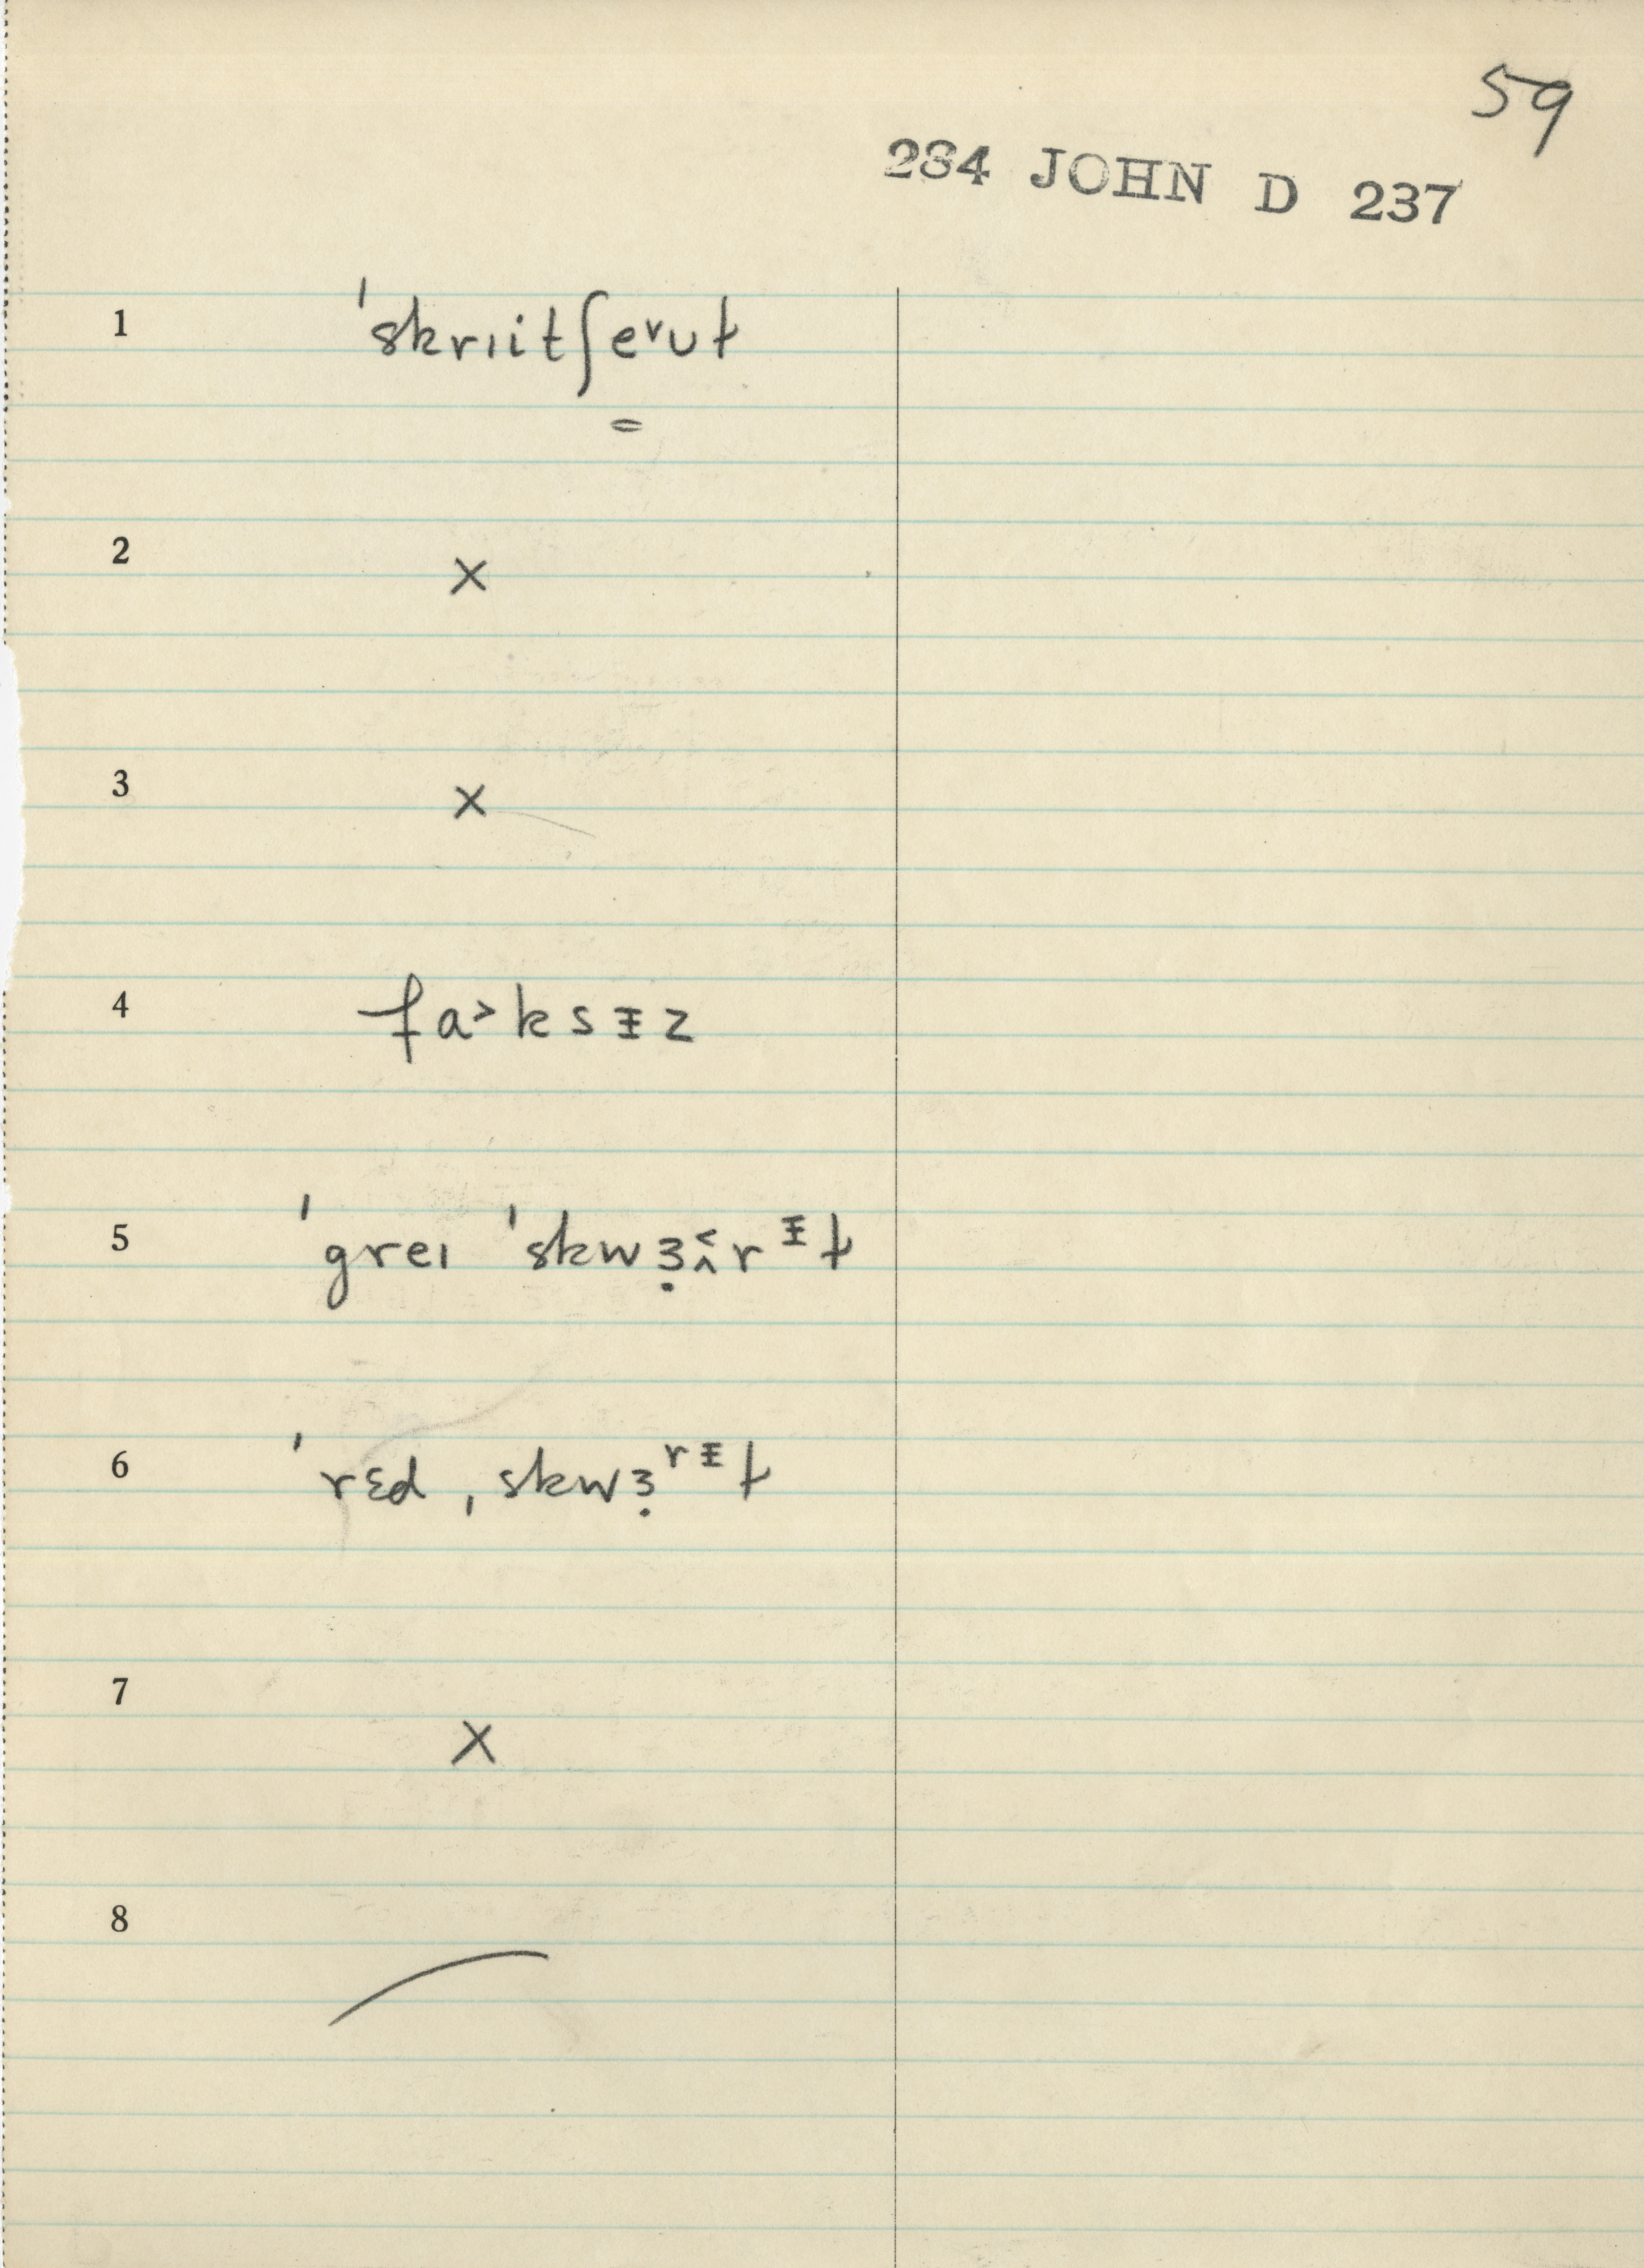 59
234 JOHN D 237
1 ˈskrɪitʃeᵛʊɫ
=
2 ×
3 ×
4 fa˃ksɪ̵z
5 ˈgreɪ ˈskwɜ̣ʌ̆rᶧɫ
6 ˈrɛd ˌskwɜ̣ʳᶧɫ
7 ×
8